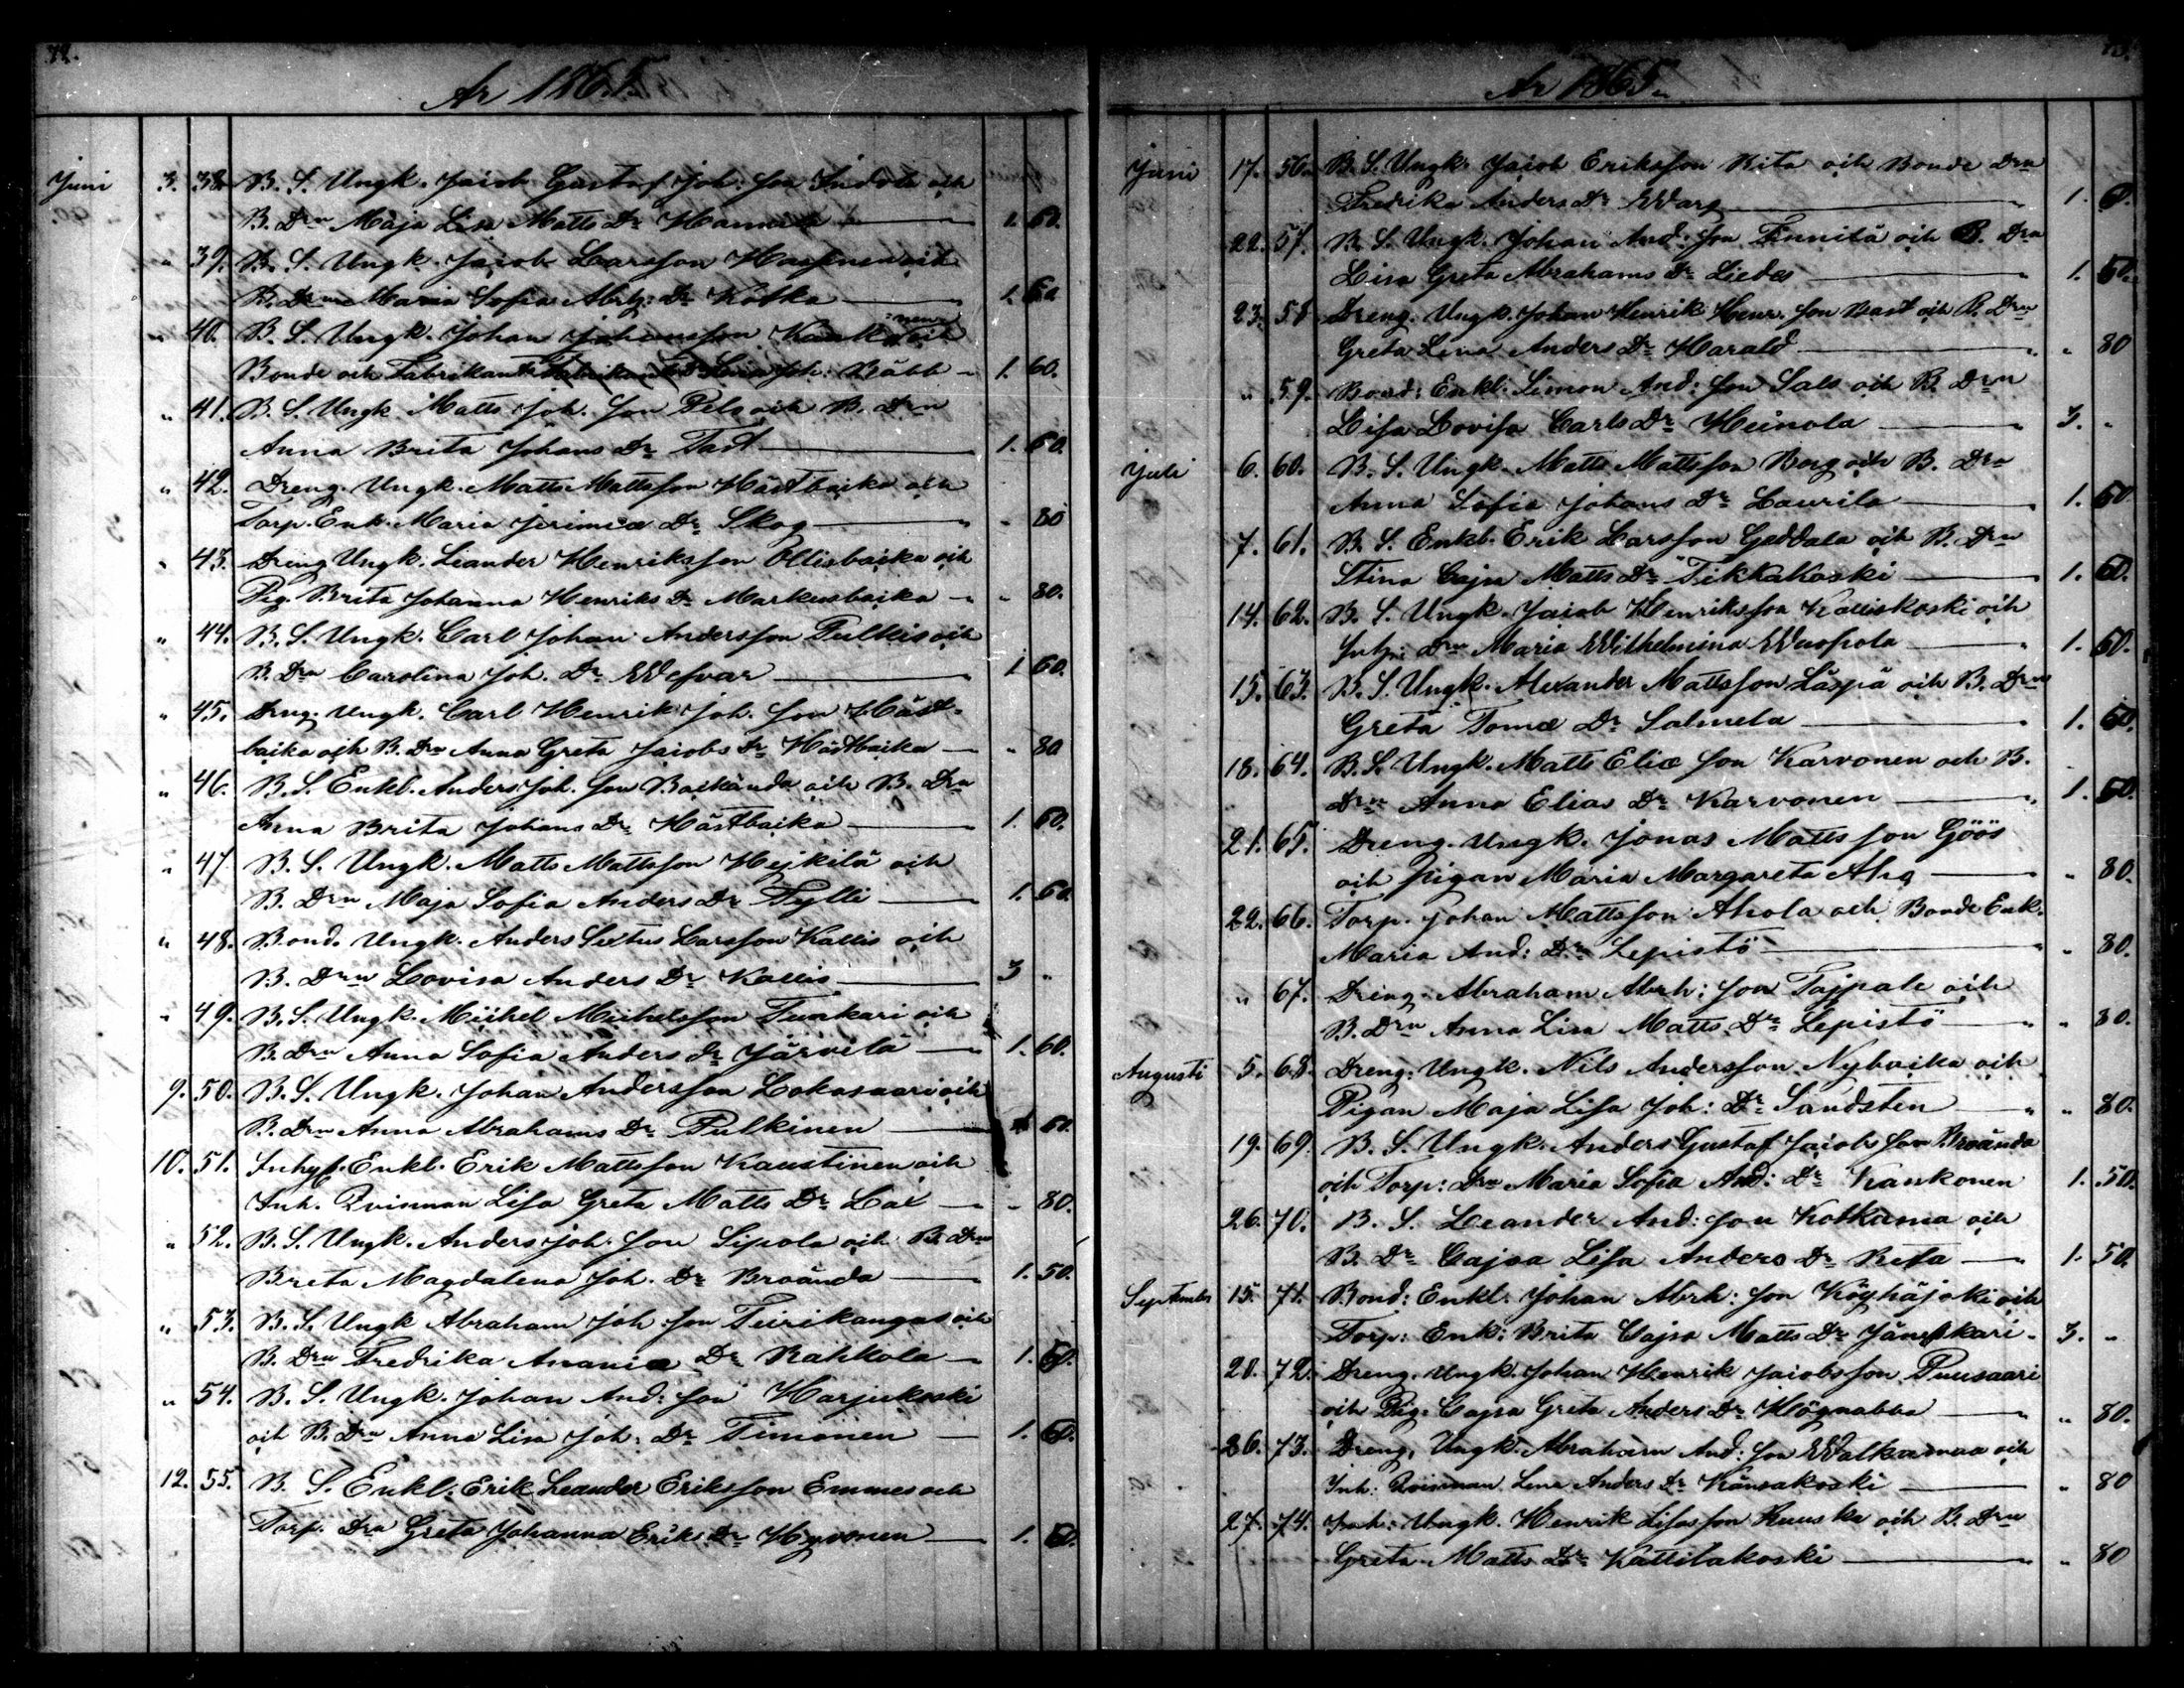 72.
År 1865.
Juni 3. 38. B. S. Ungk. Jacob Gustaf Joh: son Indola och
B. Drn Maja Lisa Matts Dr Hannila 1. 60.
" 39. B. S. Ungk. Jacob Larsson och
B. Drn Maria Sofia Abrh: Dr Kotka 1. 60
" 40. B. S. Ungk. Johan Johansson och
Bonde och Fabrikant Joh: Räbb 1. 60.
" 41. B. S. Ungk. Matts Joh. Son Pelo och B. Drn
Anna Brita Johans Dr Tast 1. 60.
" 42. Dreng. Ungk. Matts Mattsson Hästbacka och
Torp. Enk. Maria Jerimiæ Dr Skog " 80
" 43. Dreng Ungk. Leander Henriksson Ollisbacka och
Pig. Brita Johanna Henriks Dr Markusbacka " 80.
" 44. B. S. Ungk. Carl Johan Andersson Pulkis och
B. Drn Carolina Joh. Dr Wefvar 1 60.
" 45. Drng. Ungk. Carl Henrik Joh. Son Häst-
backa och B. Drn Anna Greta Jacobs Dr Hästbacka " 80
" 46. B. S. Enkl. Anders Joh. Son Backända och B. Drn
Anna Brita Johans Dr Hästbacka 1. 60.
" 47. B. S. Ungk. Matts Mattsson Hejkilä och
B. Drn Maja Sofia Anders Dr Fylli 1. 60.
" 48. Bond. Ungk. Anders Sixtus Larsson Kallis och
B. Drn Lovisa Anders Dr Kallis 3 "
" 49. B. S. Ungk. Michel Michelsson Tunkari och
B. Drn Anna Sofia Anders Dr Järvelä 1. 60.
9. 50. B. S. Ungk. Johan Andersson Lokasaari och
B. Drn Anna Abrahams Dr Pulkinen 60.
10. 51. Inhys. Enkl. Erik Mattsson Kaustinen och
Inh. Qvinnan Lisa Greta Matts Dr Cai " 80.
" 52. B. S. Ungk. Anders Joh. Son Sipola och B. Drn
Breta Magdalena Joh. Dr Broända 1. 50.
" 53. B. S. Ungk Abraham Joh Son Teirikangas och
B. Drn Fredrika Ananiæ Dr Rahkola 1. 60.
" 54. B. S. Ungk. Johan And: Son Harjukoski
och B. Drn Anna Lisa Joh: Dr Timonen 1. 60.
12. 55. B. S. Enkl. Erik Leander Eriksson Emmes och
Torp. Drn Greta Johanna Eriks Dr Hyvönen 1. 60.
År 1865.
Juni 17. 56. B. S. Ungk. Jacob Eriksson Rita och Bonde Drn
Fredrika Anders Dr Warg 1. 60.
22. 57. B. S. Ungk. Johan And: Son Finnilä och B. Drn
Lisa Greta Abrahams Dr Liedes 1. 60.
23. 58 Dreng. Ungk. Johan Henrik Henr. Son Bast och B. Drn
Greta Lena Anders Dr Harald " 80
" 59. Bond: Enkl. Simon And: Son Sals och B. Drn
Lisa Lovisa Carls Dr Heinola 3. "
Juli 6. 60. B. S. Ungk. Matts Mattsson Borg och B. Drn
Anna Sofia Johans Dr Laurila 1. 60
7. 61. B. S. Enkl. Erik Larsson Geddala och B. Drn
Stina Cajsa Matts Dr Tikkakoski 1. 60.
14. 62. B. S. Ungk. Jacob Henriksson Kalliokoski och
Inh: Drn Maria Wilhelmina Wuopola 1. 60.
15. 63. B. S. Ungk. Alexander Mattsson Läspä och B. Drn
Greta Tomæ Dr Salmela 1. 60.
18. 64. B. S. Ungk. Matts Eliæ Son Karvonen och B.
Drn Anna Elias Dr Karvonen 1. 60.
21. 65. Dreng. Ungk. Jonas Matts son Göös
och pigan Maria Margareta Aho " 80.
22. 66. Torp. Johan Mattsson Ahola och Bonde Enk.
Maria And: Dr Lepistö " 80.
" 67. Dreng. Abraham Abrh: Son Tajpale och
B. Drn Anna Lisa Matts Dr Lepistö " 80.
Augusti 5. 68. Dreng: Ungk. Nils Andersson Nybacka och
Pigan Maja Lisa Joh: Dr Sandsten " 80.
19. 69. B. S. Ungk. Anders Gustaf Jacobsson Broända
och Torp: Drn Maria Sofia And: Dr Kankonen 1. 50.
26. 70. B. S. Leander And: Son Kotkama och
B. Dr Cajsa Lisa Anders Dr Reta 1. 50.
Septembr 15. 71. Bond: Enkl. Johan Abrh: Son Köyhäjoki och
Torp: Enk: Brita Cajsa Matts Dr 3. "
20. 72. Dreng. Ungk. Johan Henrik Jacobsson Puusaari
och Pig: Cajsa Greta Anders Dr Högnabba " 80.
26. 73. Dreng. Ungk. Abraham And: Son Walkamaa och
Inh: Qvinnan Lena Anders Dr Känsäkoski " 80
27. 74. Inh: Ungk. Henrik Lisasson Ruuska och B. Drn
Greta Matts Dr Kattilakoski " 80